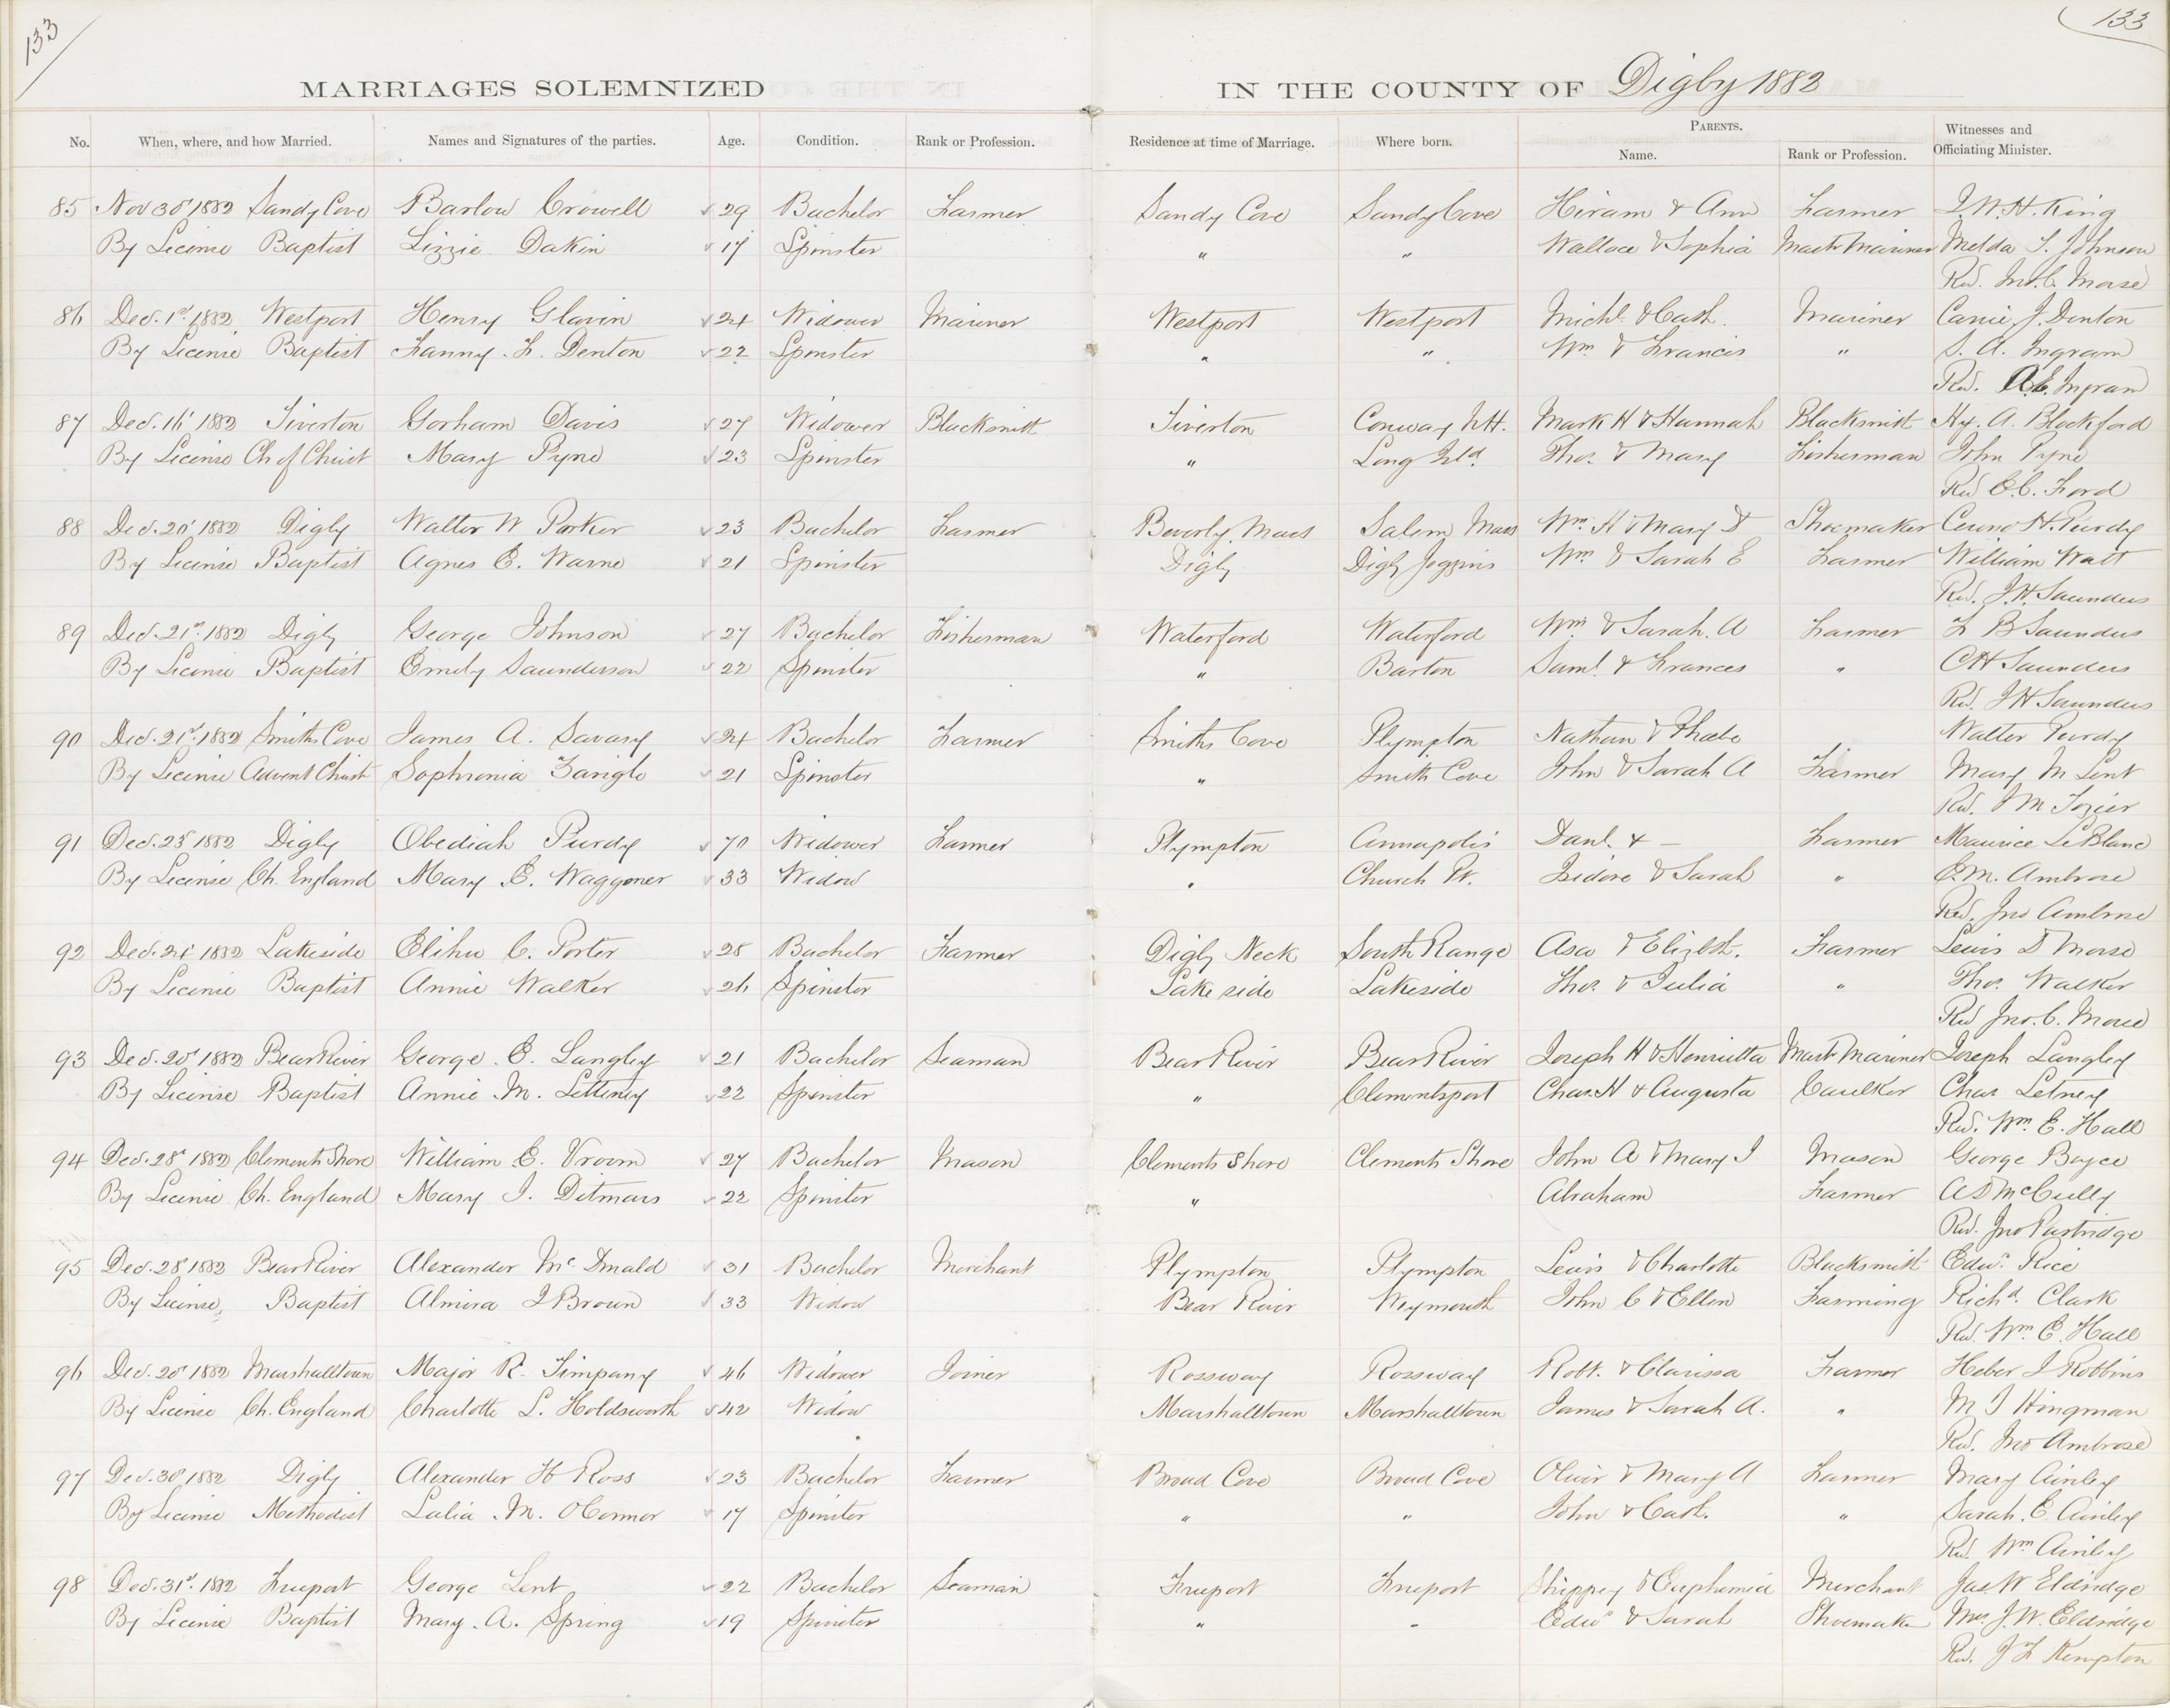 133
133
MARRIAGES SOLEMNIZED IN THE COUNTY OF Digby 1882
No. When, where, and how Married. Names and Signatures of the parties. Age. Condition. Rank or Profession. Residence at time of Marriage. Where born. PARENTS. Name. Rank or Profession. Witnesses and Officiating Minister.
85 Nov 30' 1882 Sandy Cove Barlow Crowell 29 Bachelor Farmer Sandy Cove Sandy Cove Hiram & Ann Farmer J.W.H. King
By License Baptist Lizzie Dakin 17 Spinster " " Wallace & Sophia Mastr Mariner Melda T. Johnson
Rev. Jno. C. Morse
86 Dec. 1st 1882 Westport Henry Glavin 24 Widower Mariner Westport Westport Michl & Cath. Mariner Carrie J. Denton
By License Baptist Fanny F. Denton 22 Spinster " " Wm & Francis " S. A. Ingram
Rev. A.E. Ingram
87 Dec. 16' 1882 Tiverton Gorham Davis 27 Widower Blacksmith Tiverton Conway N.H. Mark H & Hannah Blacksmith Hy. A. Blackford
By License Ch of Christ Mary Pyne 23 Spinster " Long Isld. Thos. & Mary Fisherman John Pyne
Rev E.C. Ford
88 Dec. 20' 1882 Digby Walter W Porter 23 Bachelor Farmer Beverly, Mass Salem Mass Wm H & Mary D Shoemaker H. Purdy
By License Baptist Agnes E. Warne 21 Spinster Digby Digby Joggins Wm & Sarah E Farmer William Watt
Rev. J.H. Saunders
89 Dec. 21st 1882 Digby George Johnson 27 Bachelor Fisherman Waterford Waterford Wm & Sarah. A Farmer F B Saunders
By License Baptist Emily Saunderson 22 Spinster " Barton Saml. & Frances " C H Saunders
Rev. J H Saunders
90 Dec. 21st 1882 Smiths Cove James A. Savary 24 Bachelor Farmer Smiths Cove Plympton Nathan & Phoebe Walter Purdy
By License Advent Christ Sophronia Zarigle 21 Spinster " Smith Cove John & Sarah A Farmer Mary M Lent
Rev. J M Tozier
91 Dec. 23' 1882 Digby Obediah Purdy 70 Widower Farmer Plympton Annapolis Danl. & — Farmer Maurice LeBlanc
By License Ch. England Mary E. Waggoner 33 Widow " Church Pt. Isidore & Sarah " E.M. Ambrose
Rev. Jno Ambrose
92 Dec. 24' 1882 Lakeside Elihu C. Porter 28 Bachelor Farmer Digby Neck South Range Asa & Elizbth. Farmer Lewis D Morse
By License Baptist Annie Walker 26 Spinster Lake side Lakeside Thos. & Julia " Thos. Walker
Rev Jno. C. Morse
93 Dec. 20' 1882 Bear River George E. Langley 21 Bachelor Seaman Bear River Bear River Joseph H & Henrietta Mastr Mariner Joseph Langley
By License Baptist Annie M. Litteney 22 Spinster " Clementsport Chas. N & Augusta Caulker Chas Letney
Rev. Wm. E. Hall
94 Dec. 28' 1882 Clements Shore William E. Vroom 27 Bachelor Mason Clements Shore Clements Shore John A & Mary J Mason George Boyce
By License Ch. England Mary J. Ditmars 22 Spinster " Abraham Farmer A D McCully
Rev. Jno Partridge
95 Dec. 28' 1882 Bear River Alexander McDonald 31 Bachelor Merchant Plympton Plympton Lewis & Charlotte Blacksmith Edwd. Rice
By License, Baptist Almira J Brown 33 Widow Bear River Weymouth John C & Ellen Farming Richd. Clark
Rev. Wm. E. Hall
96 Dec. 20' 1882 Marshalltown Major R. Timpany 46 Widower Joiner Rossway Rossway Robt. & Clarissa Farmer Heber J Robbins
By License Ch. England Charlotte L. Holdsworth 42 Widow Marshalltown Marshalltown James & Sarah A. " M J Hingman
Rev. Jno Ambrose
97 Dec. 30' 1882 Digby Alexander H Ross 23 Bachelor Farmer Broad Cove Broad Cove Oliver & Mary A Farmer Mary Ainley
By License Methodist Lalia M. OConnor 17 Spinster " " John & Cath. " Sarah. E. Ainley
Rev. Wm Ainley
98 Dec. 31st. 1882 Freeport George Lent 22 Bachelor Seaman Freeport Freeport Shippey & Euphemia Merchant Jas W Eldridge
By License Baptist Mary. A. Spring 19 Spinster " " Edwd & Sarah Shoemaker Mrs. J. W. Eldridge
Rev. J F Kempton